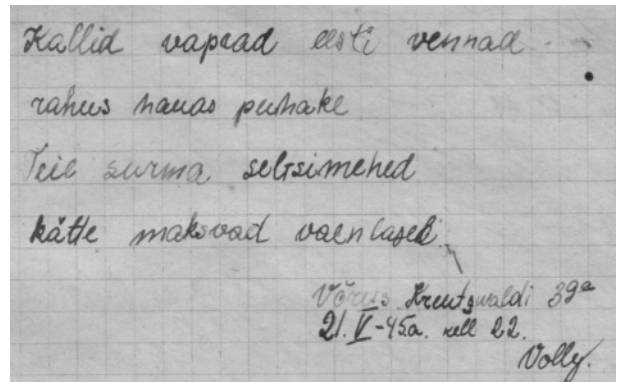 Kallid vaprad eesti vennad
rahus hauas puhake
Teie surma seltsimehed
kätte maksvad vaenlasele
Võrus Kreutswaldi 39a
21. V-45a. kell 22.
Volly.